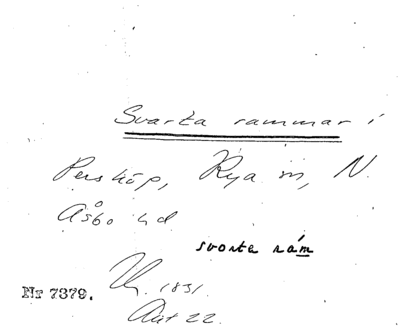 Svarta rammar i
Perstöp, Rya sn, N.
Åsbo hd
svorta rám
Nr 7379. Uh. 1831.
Aut 22.